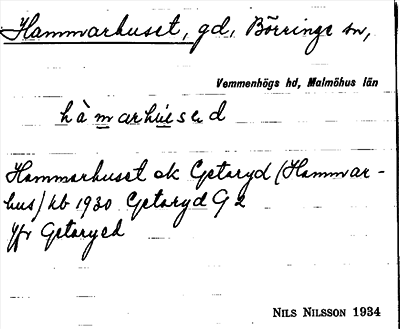 Hammarhuset, gd, Börringe sn,
Vemmenhögs hd, Malmöhus län
hàmarhùsəd
Hammarhuset ek Getaryd (Hammar-
hus) kb 1930 Getaryd G 2
Jfr Getaryed
NILS NILSSON 1934